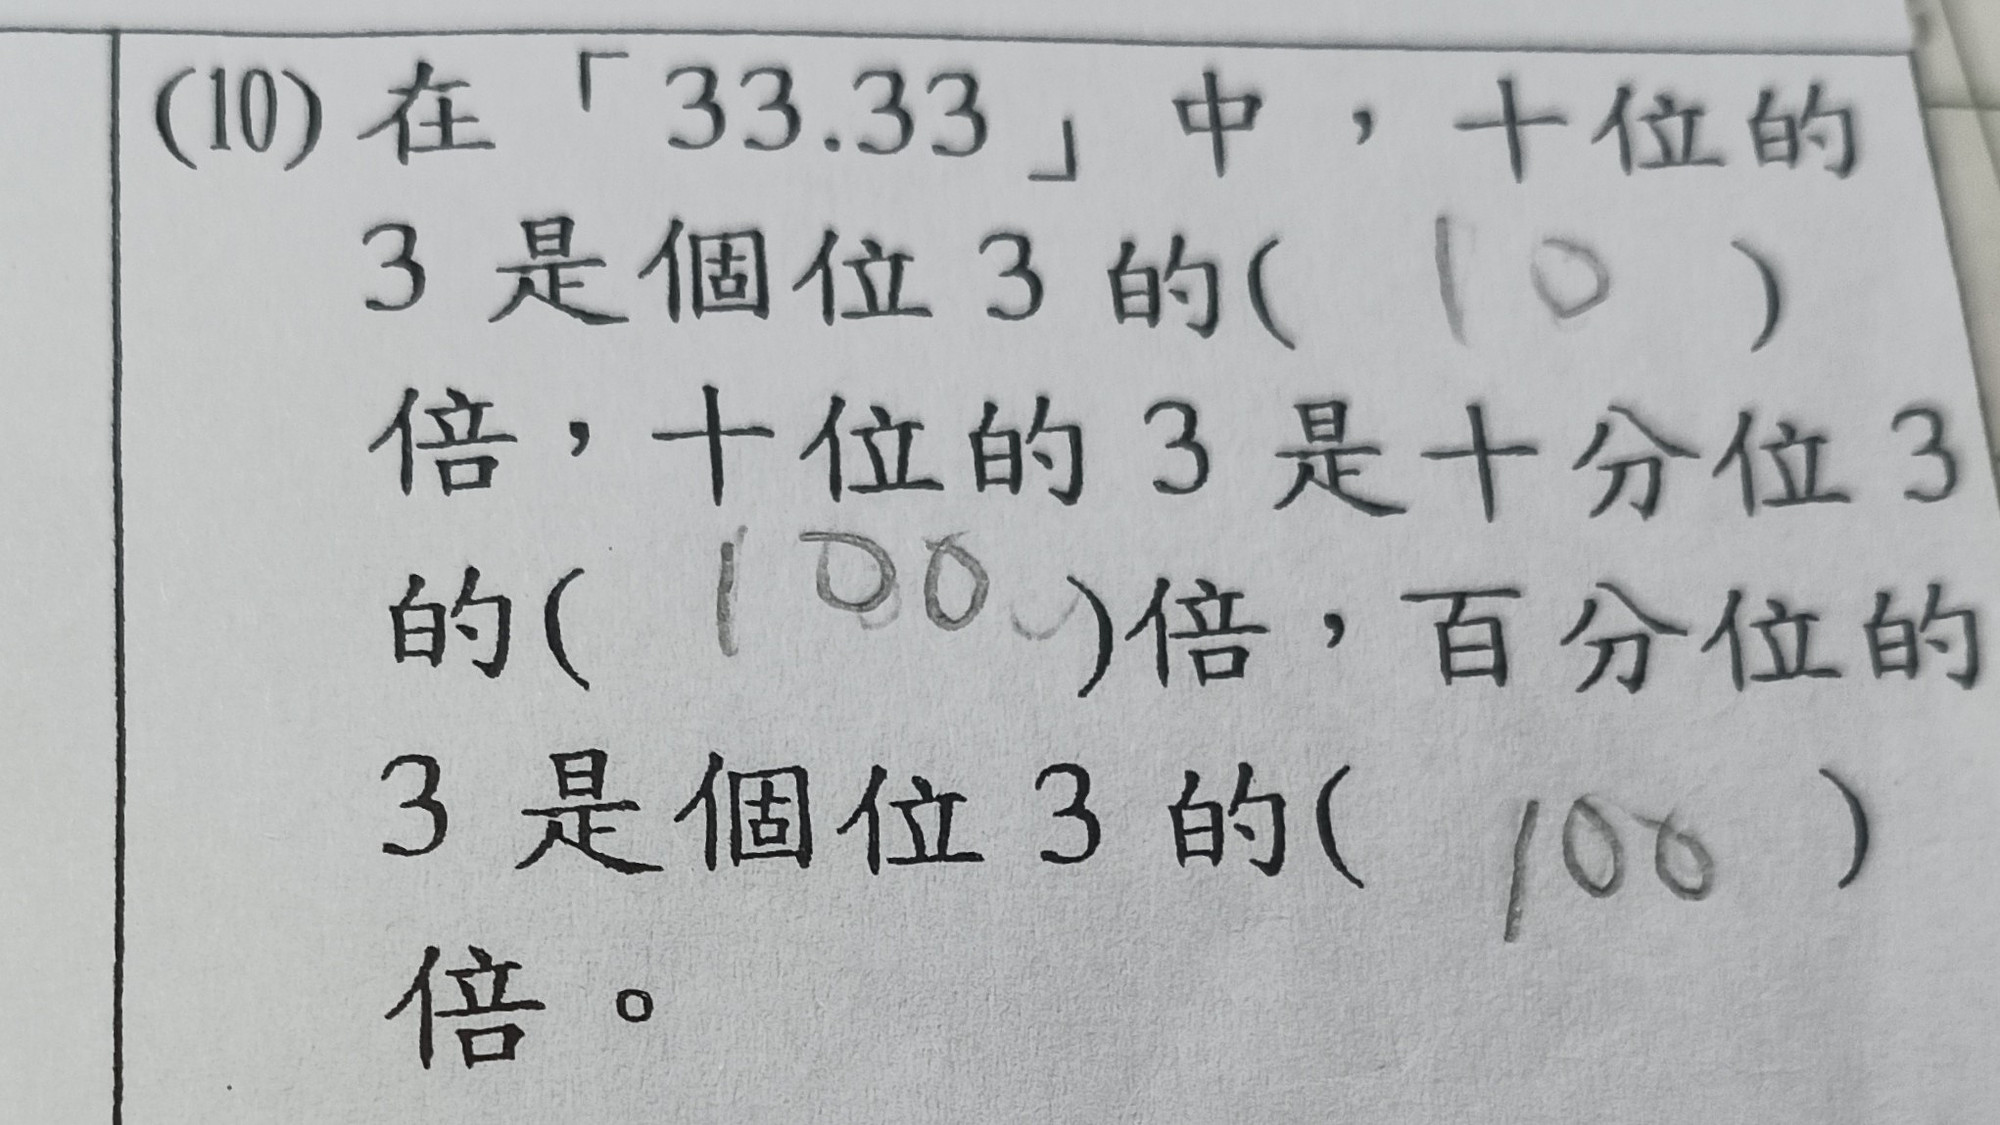 (10) 在「33.33」中，十位的
3 是個位 3 的( 10 )
倍，十位的 3 是十分位 3
的( 100 )倍，百分位的
3 是個位 3 的( 100 )
倍。